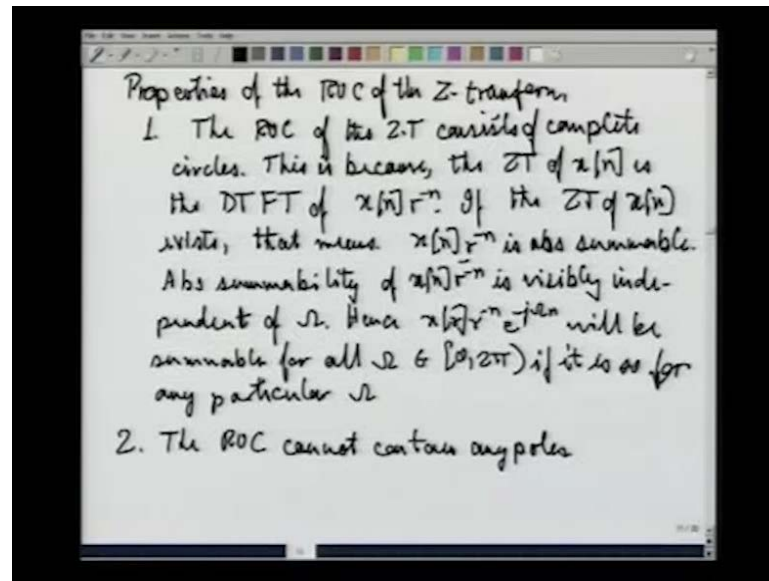 Properties of the ROC of the Z-transform
1. The ROC of the Z.T consists of complete
circles. This is because, the ZT of x[n] is
the DTFT of x[n]r⁻ⁿ. If the ZT of x[n]
exists, that means x[n]r⁻ⁿ is abs summable.
Abs summability of x[n]r⁻ⁿ is visibly inde-
pendent of Ω. Hence x[n]r⁻ⁿe^{-jΩn} will be
summable for all Ω ∈ [0, 2π) if it is so for
any particular Ω
2. The ROC cannot contain any poles